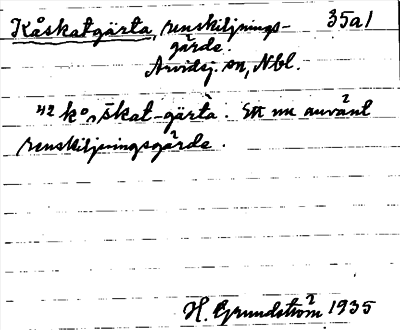 Kåskatgärta, renskiljnings- 35a1
gärde.
Arvidsj. sn, Nbl.
42 kåskat-gärta. Ett nu använt
renskiljningsgärde.
H. Grundström 1935